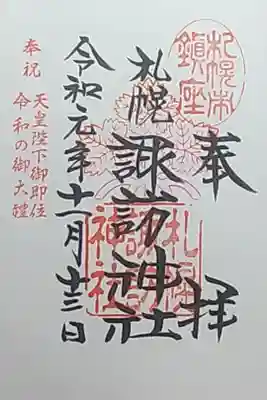 奉拝
札幌市
鎮座
札幌
諏訪神社
札幌
諏訪
神社
令和元年十一月廿三日
奉祝
天皇陛下御即位
令和の御大禮